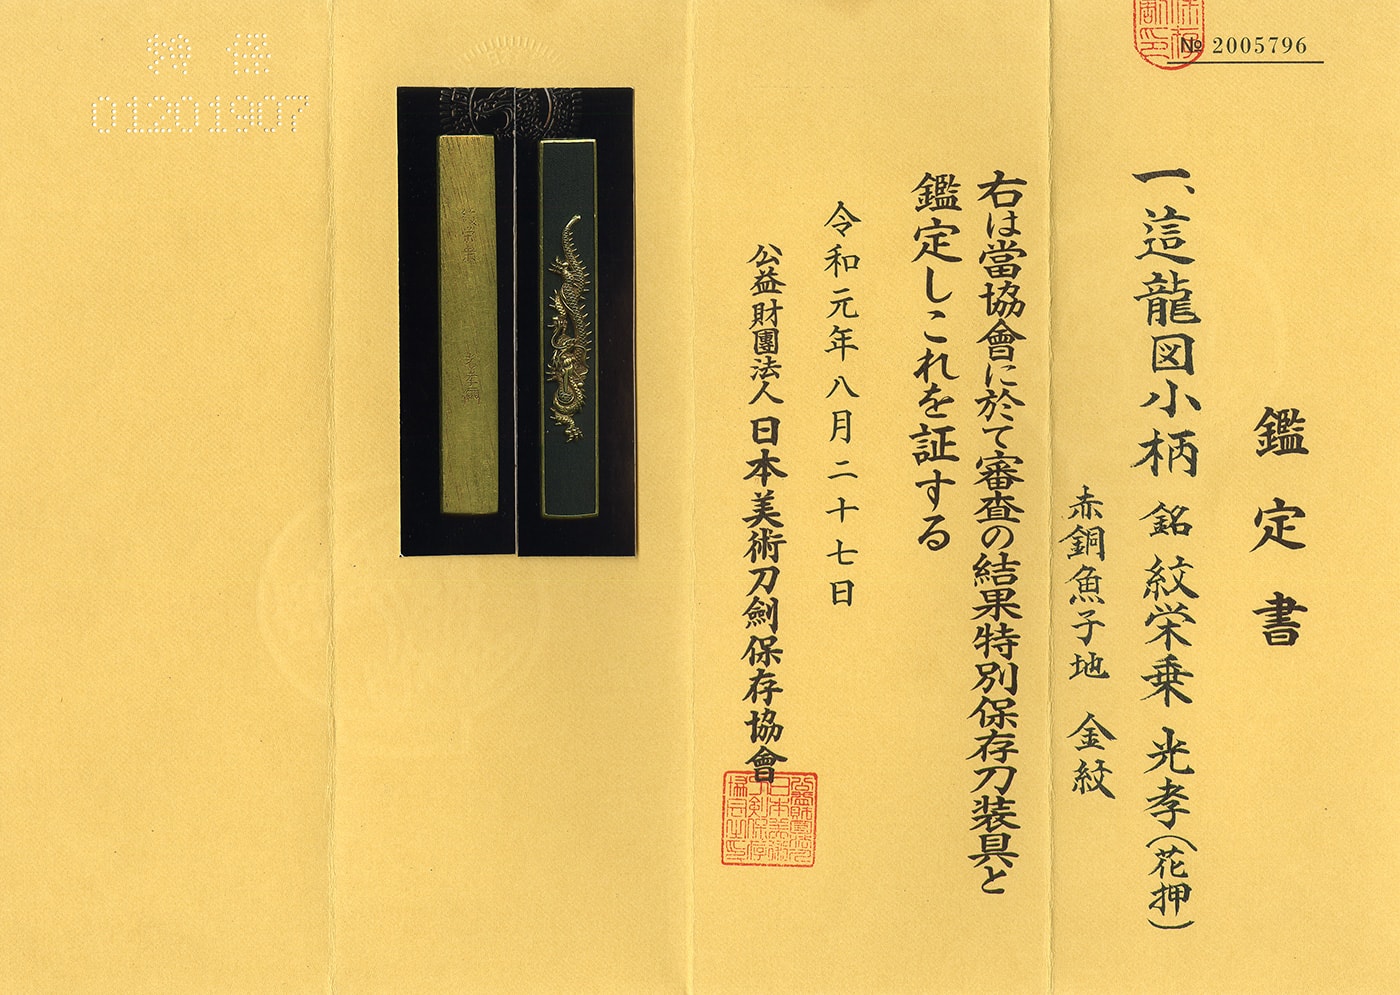 № 2005796
鑑定書
一、這龍図小柄 銘 紋栄乗 光孝(花押)
赤銅魚子地 金紋
右は當協會に於て審査の結果特別保存刀装具と
鑑定しこれを証する
令和元年八月二十七日
公益財團法人 日本美術刀劍保存協會
特保
01201907
紋栄乗